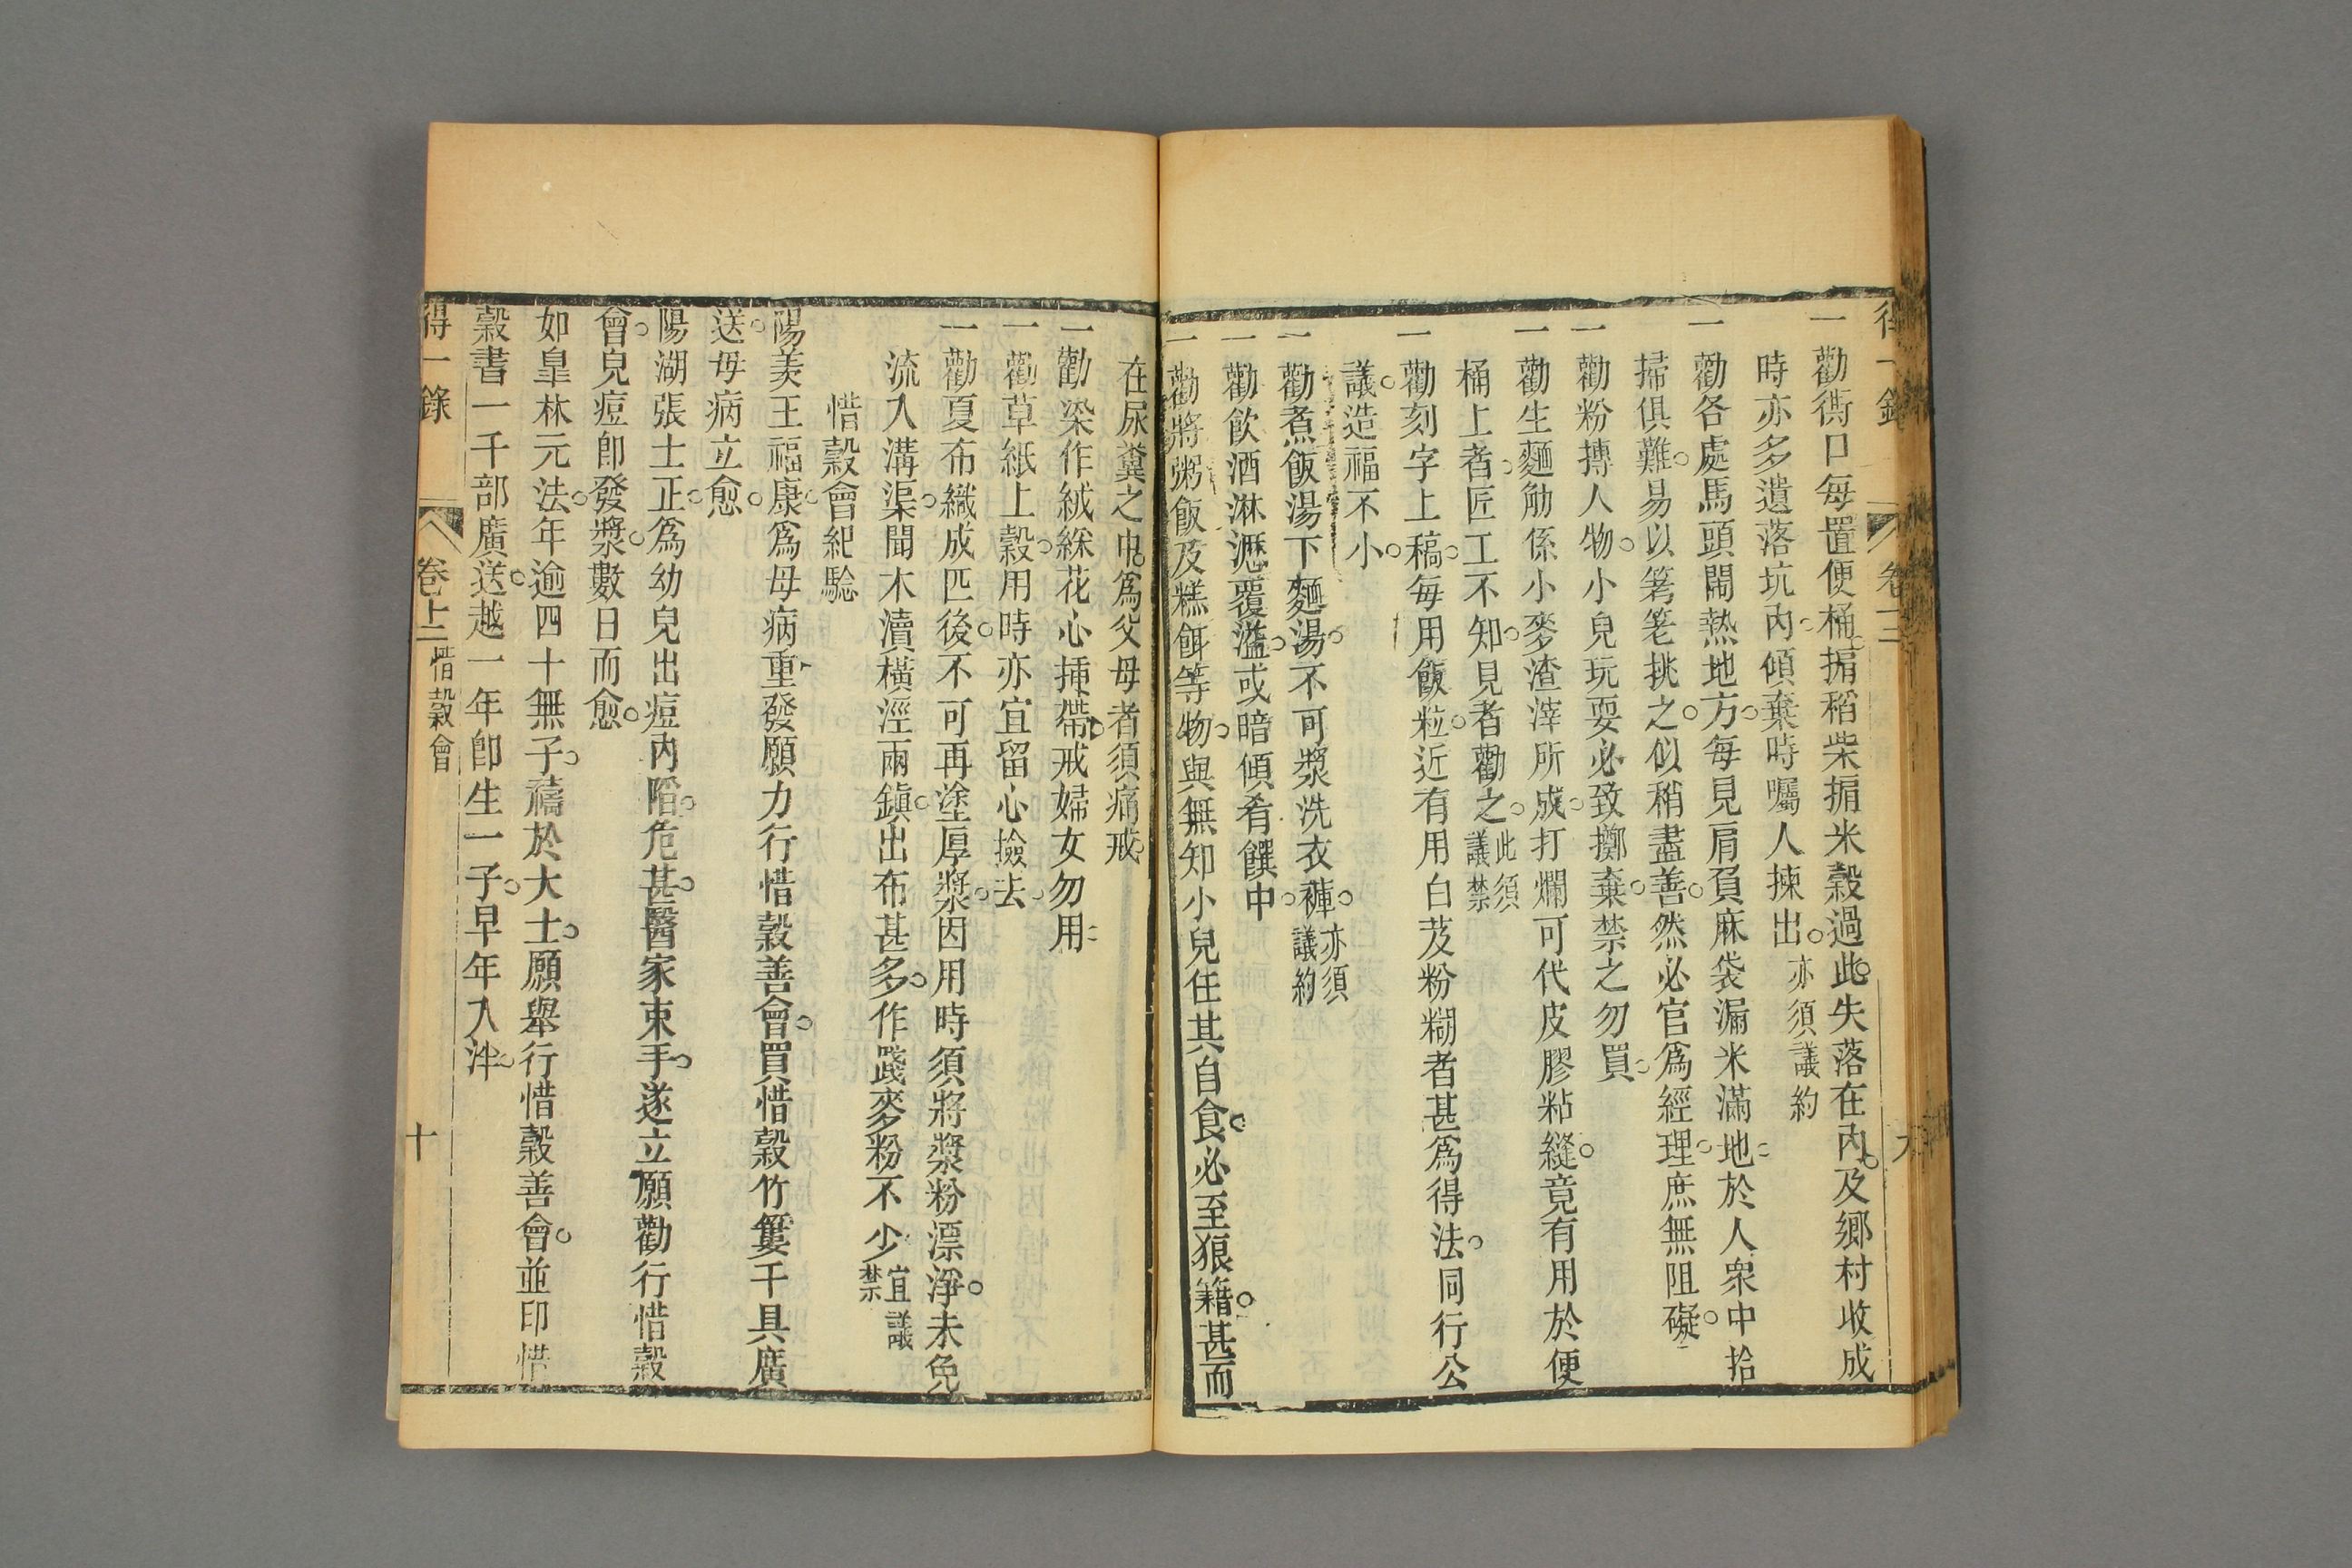 得一錄
卷三
一勸衖口每置便桶掮稻柴掮米穀過此失落在內及鄉村收成
時亦多遺落坑內傾棄時囑人揀出亦須議約
一勸各處馬頭鬧熱地方每見肩負麻袋漏米滿地於人衆中拾
掃俱難易以筭筅挑之似稍盡善然必官爲經理庶無阻礙
一勸粉摶人物小兒玩耍必致擲棄禁之勿買
一勸生麵觔係小麥渣滓所成打爛可代皮膠粘縫竟有用於便
桶上者匠工不知見者勸之此須議禁
一勸刻字上稿每用飯粒近有用白芨粉糊者甚爲得法同行公
議造福不小
一勸煮飯湯下麵湯不可漿洗衣褲亦須議約
一勸飲酒淋瀝覆濫或暗傾肴饌中
一勸將粥飯及糕餌等物與無知小兒任其自食必至狼籍甚而
在尿糞之巾爲父母者須痛戒
一勸染作絨綵花心揷帶戒婦女勿用
一勸草紙上穀用時亦宜留心撿去
一勸夏布織成匹後不可再塗厚漿因用時須將漿粉漂淨未免
流入溝渠聞木瀆橫涇兩鎭出布甚多作踐麥粉不少宜議禁
惜穀會紀騐
陽羨王福康爲母病重發願力行惜穀善會買惜穀竹籆千具廣
送母病立愈
陽湖張士正爲幼兒出痘內陷危甚醫家束手遂立願勸行惜穀
會兒痘卽發漿數日而愈
如皐林元法年逾四十無子禱於大士願舉行惜穀善會並印惜
穀書一千部廣送越一年卽生一子早年入泮
得一錄
卷上二 惜穀會
十